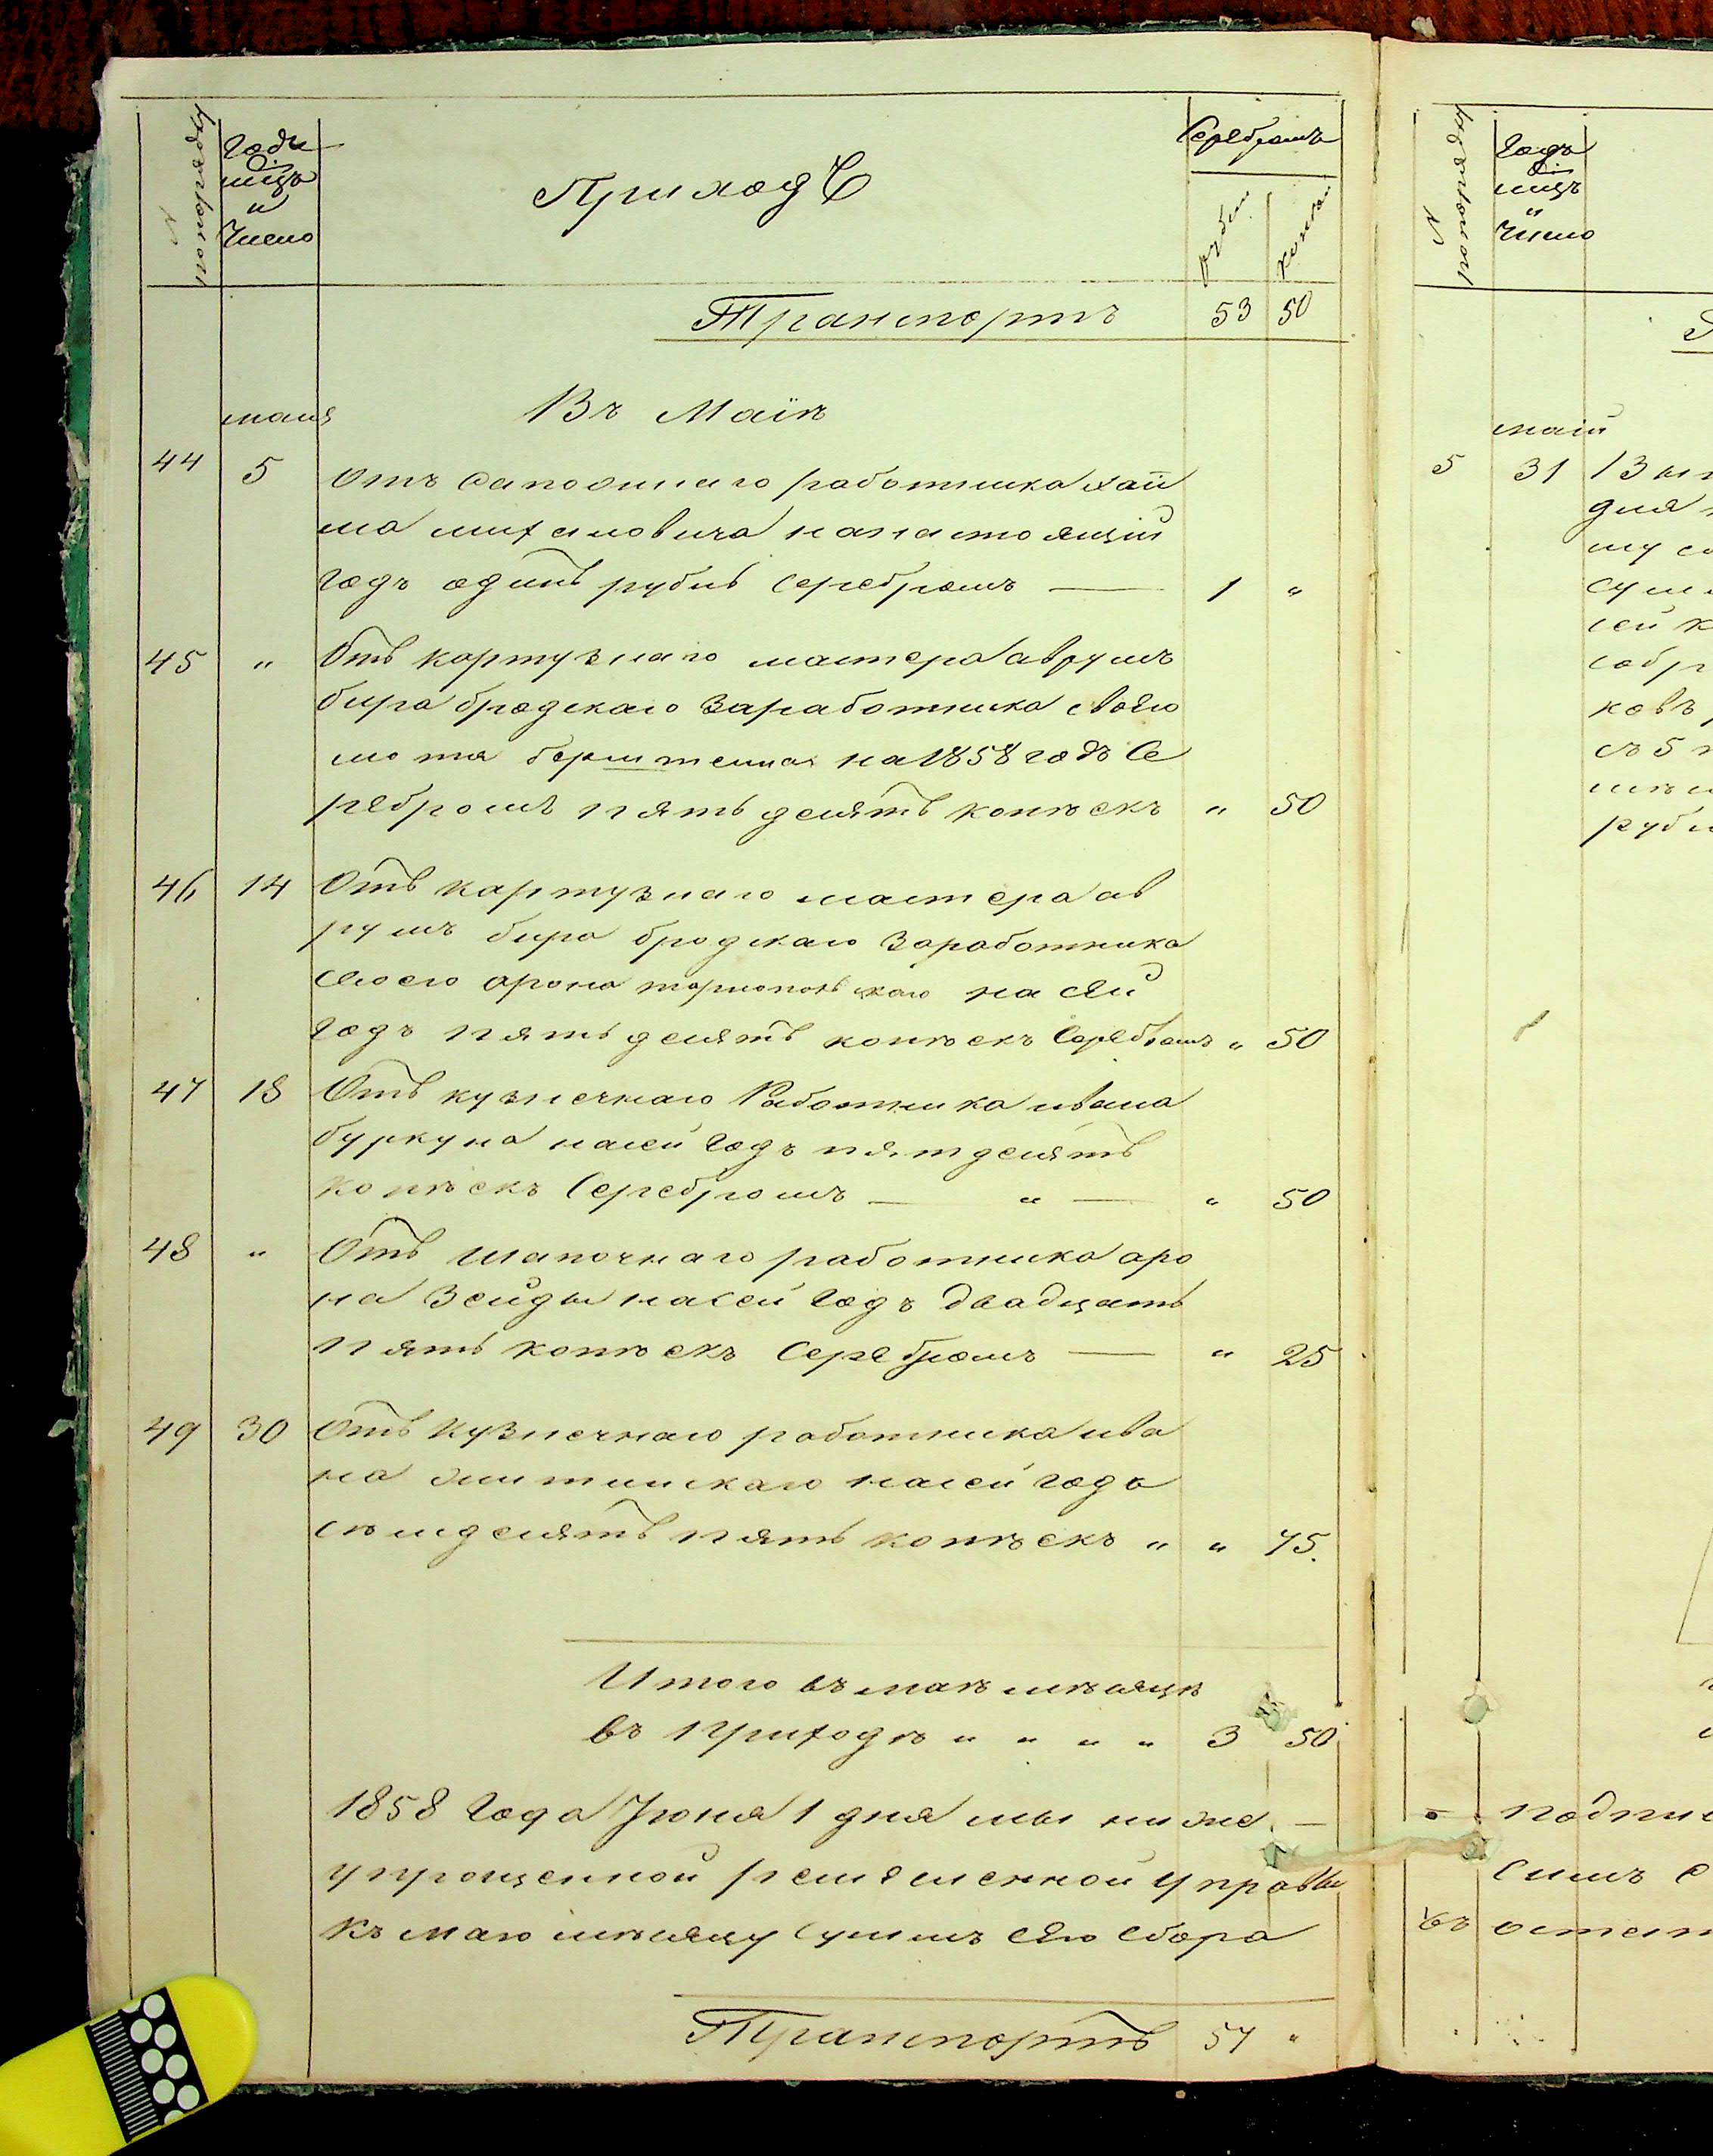 № по порядку
Годъ
мцъ
и
Число
Приходъ
Серебромъ
рубли
копѣй
Транспортъ 53 50
мая Въ Маѣ
44 5 Отъ Сапожнаго работника Хаи
ма на настоящій
годъ одинъ рубль Серебромъ — 1 "
45 " Отъ картузнаго мастера аврумъ
бира бродскаго за работника своего
мотя на 1858 годъ Се
ребромъ пять десятъ копѣекъ " 50
46 14 Отъ картузнаго мастера ав
румъ бира бродскаго за работника
своего арона на сей
годъ пять десятъ копѣекъ Серебромъ " 50
47 18 Отъ кузнечнаго Работника ивана
буркуна на сей годъ пятдесятъ
копѣекъ Серебромъ — " — " 50
48 " Отъ шапочнаго работника аро
на Зейды на сей годъ двадцать
пять копѣекъ Серебромъ — " 25
49 30 Отъ Кузнечнаго работника ива
на на сей годъ
семдесятъ пять копѣекъ " " 75.
Итого въ маѣ мѣсяцѣ
въ приходѣ " " " " 3 50
1858 Года Іюня 1 дня мы ниже —
упрощенной ремесленной управы
Къ маю мѣсяцу Суммъ сего сбора
Транспортъ 57 "
№ по порядку
Годъ
мцъ
и
Число
май
5 31
съ 5
подпис
симъ с
въ остат